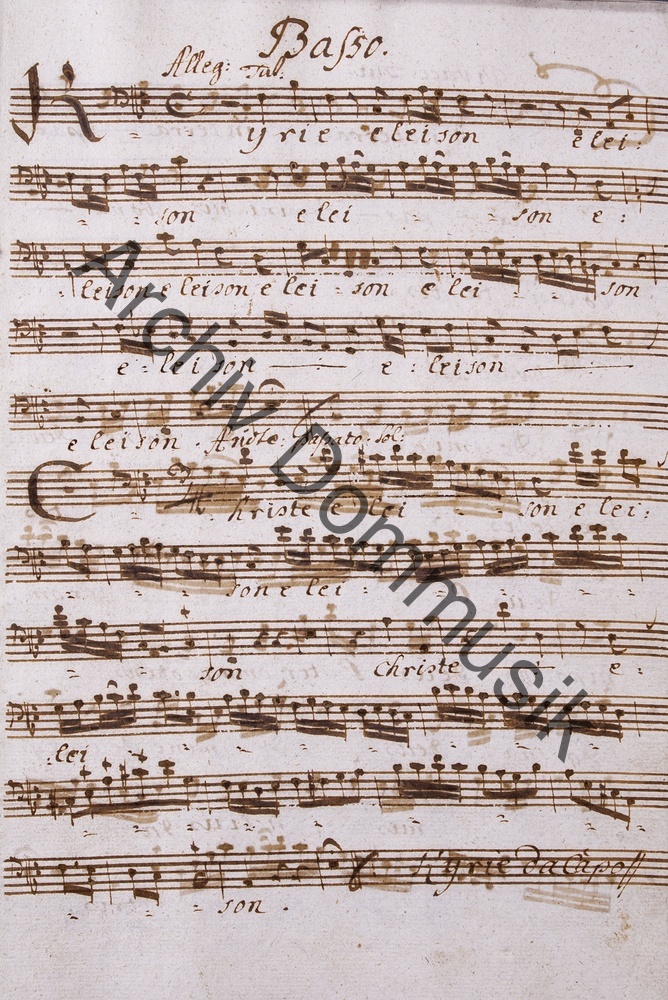 Basso.
Alleg:
Kyrie eleison elei:
son elei son e:
leison eleison elei son elei son
e:leison e:leison
eleison. Andte: Sol:
Christe elei son elei:
son elei
son Christe e:
lei
son.
Kyrie da Capo
Archiv Dommusik